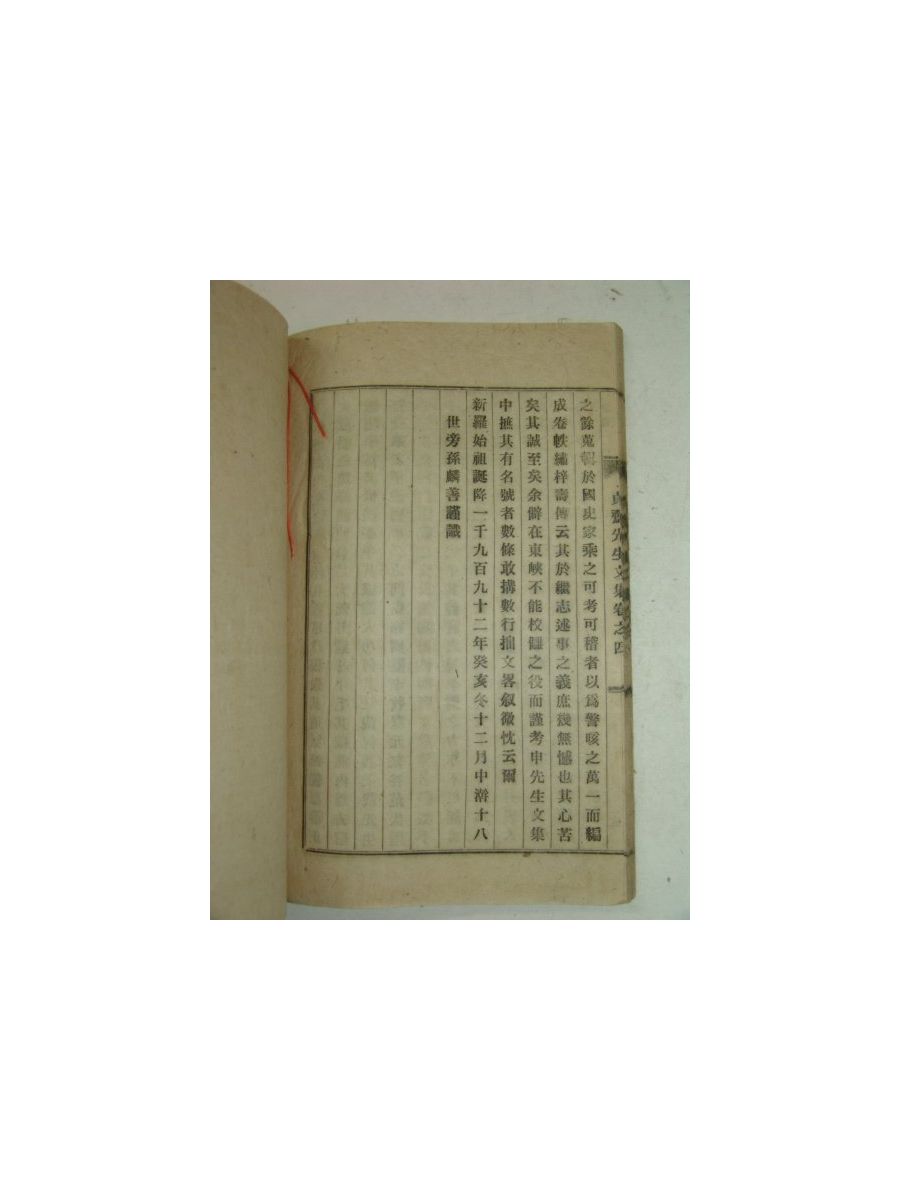 之餘蒐輯於國史家乘之可考可稽者以爲警咳之萬一而編
成卷帙繡梓壽傳云其於繼志述事之義庶幾無憾也其心苦
矣其誠至矣余僻在東峽不能校讎之役而謹考申先生文集
中摭其有名號者數條敢搆數行拙文畧叙微忱云爾
新羅始祖誕降一千九百九十二年癸亥冬十二月中澣十八
世旁孫麟善謹識
先生文集卷之四